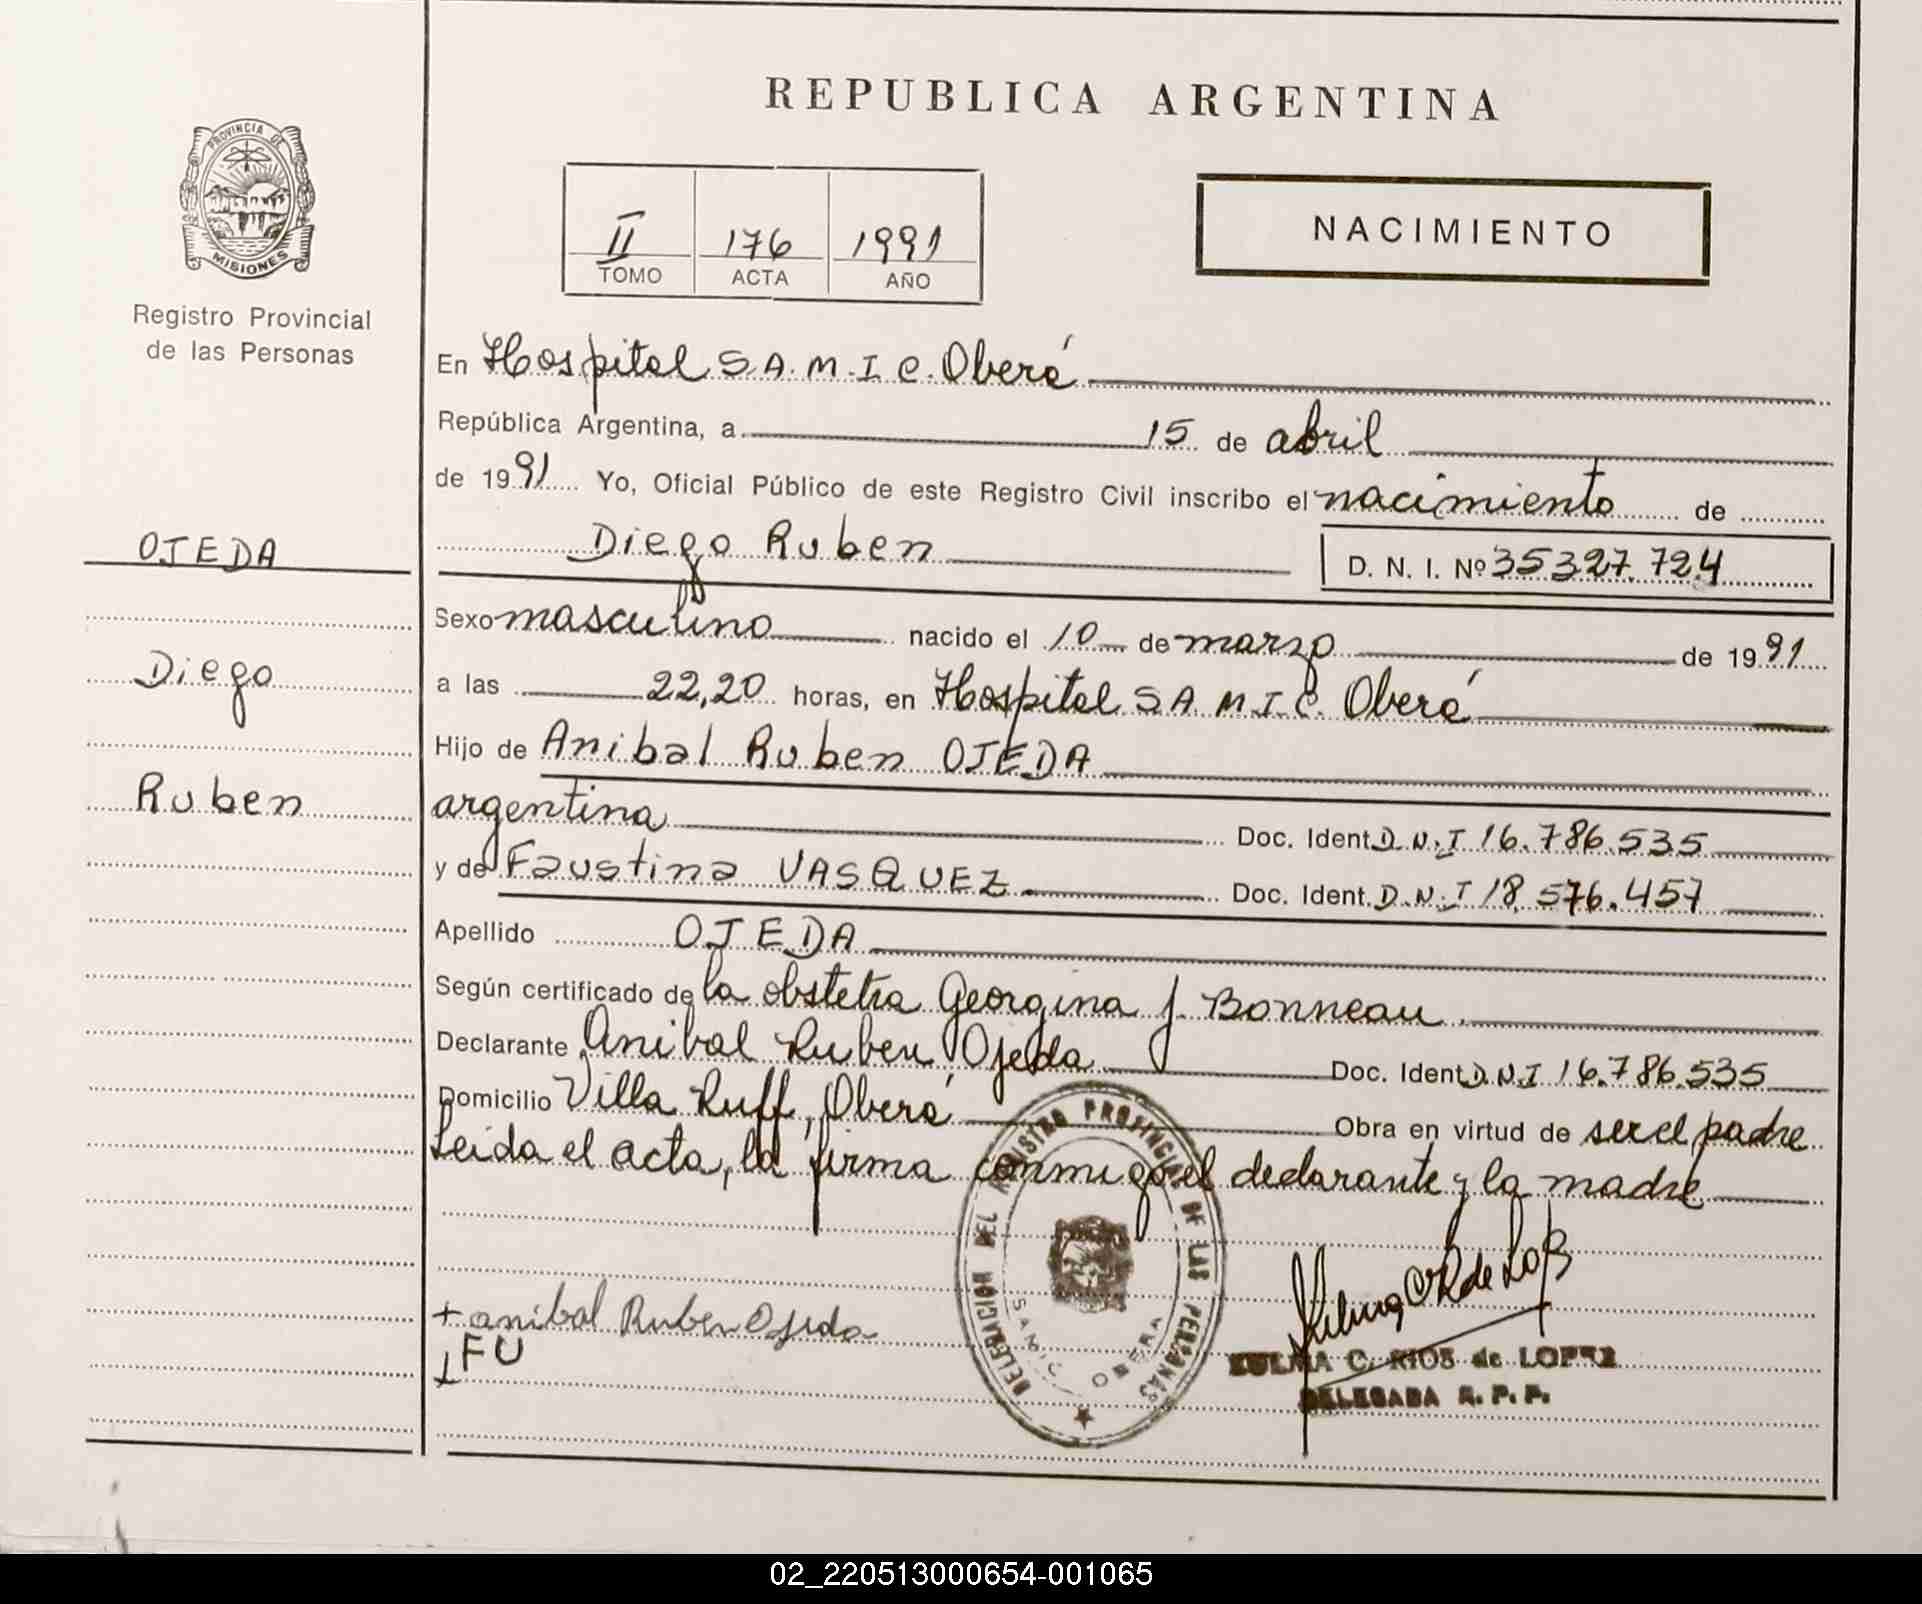 REPUBLICA ARGENTINA
PROVINCIA DE
MISIONES
Registro Provincial
de las Personas
II 176 1991
TOMO ACTA AÑO
NACIMIENTO
En Hospital S.A.M.I.C. Oberá
República Argentina, a 15 de abril
de 1991 Yo, Oficial Público de este Registro Civil inscribo el nacimiento de
Diego Ruben D. N. I. Nº 35327.724
Sexo masculino nacido el 10 de marzo de 1991
a las 22,20 horas, en Hospital S.A.M.I.C. Oberá
Hijo de Anibal Ruben OJEDA
argentina Doc. Ident. D.N.I 16.786.535
y de Faustina VASQUEZ Doc. Ident. D.N.I 18.576.457
Apellido OJEDA
Según certificado de la obstetra Georgina J. Bonneau.
Declarante Anibal Ruben Ojeda Doc. Ident. D.N.I 16.786.535
Domicilio Villa Ruff, Oberá Obra en virtud de ser el padre
Leida el acta, la firma conmigo el declarante y la madre
OJEDA
Diego
Ruben
+ anibal Ruben Ojeda
FU
DELEGACION DEL REGISTRO PROVINCIAL DE LAS PERSONAS
SAMIC OBERA
ZULMA C. RIOS de LOPEZ
DELEGADA R. P. P.
02_220513000654-001065